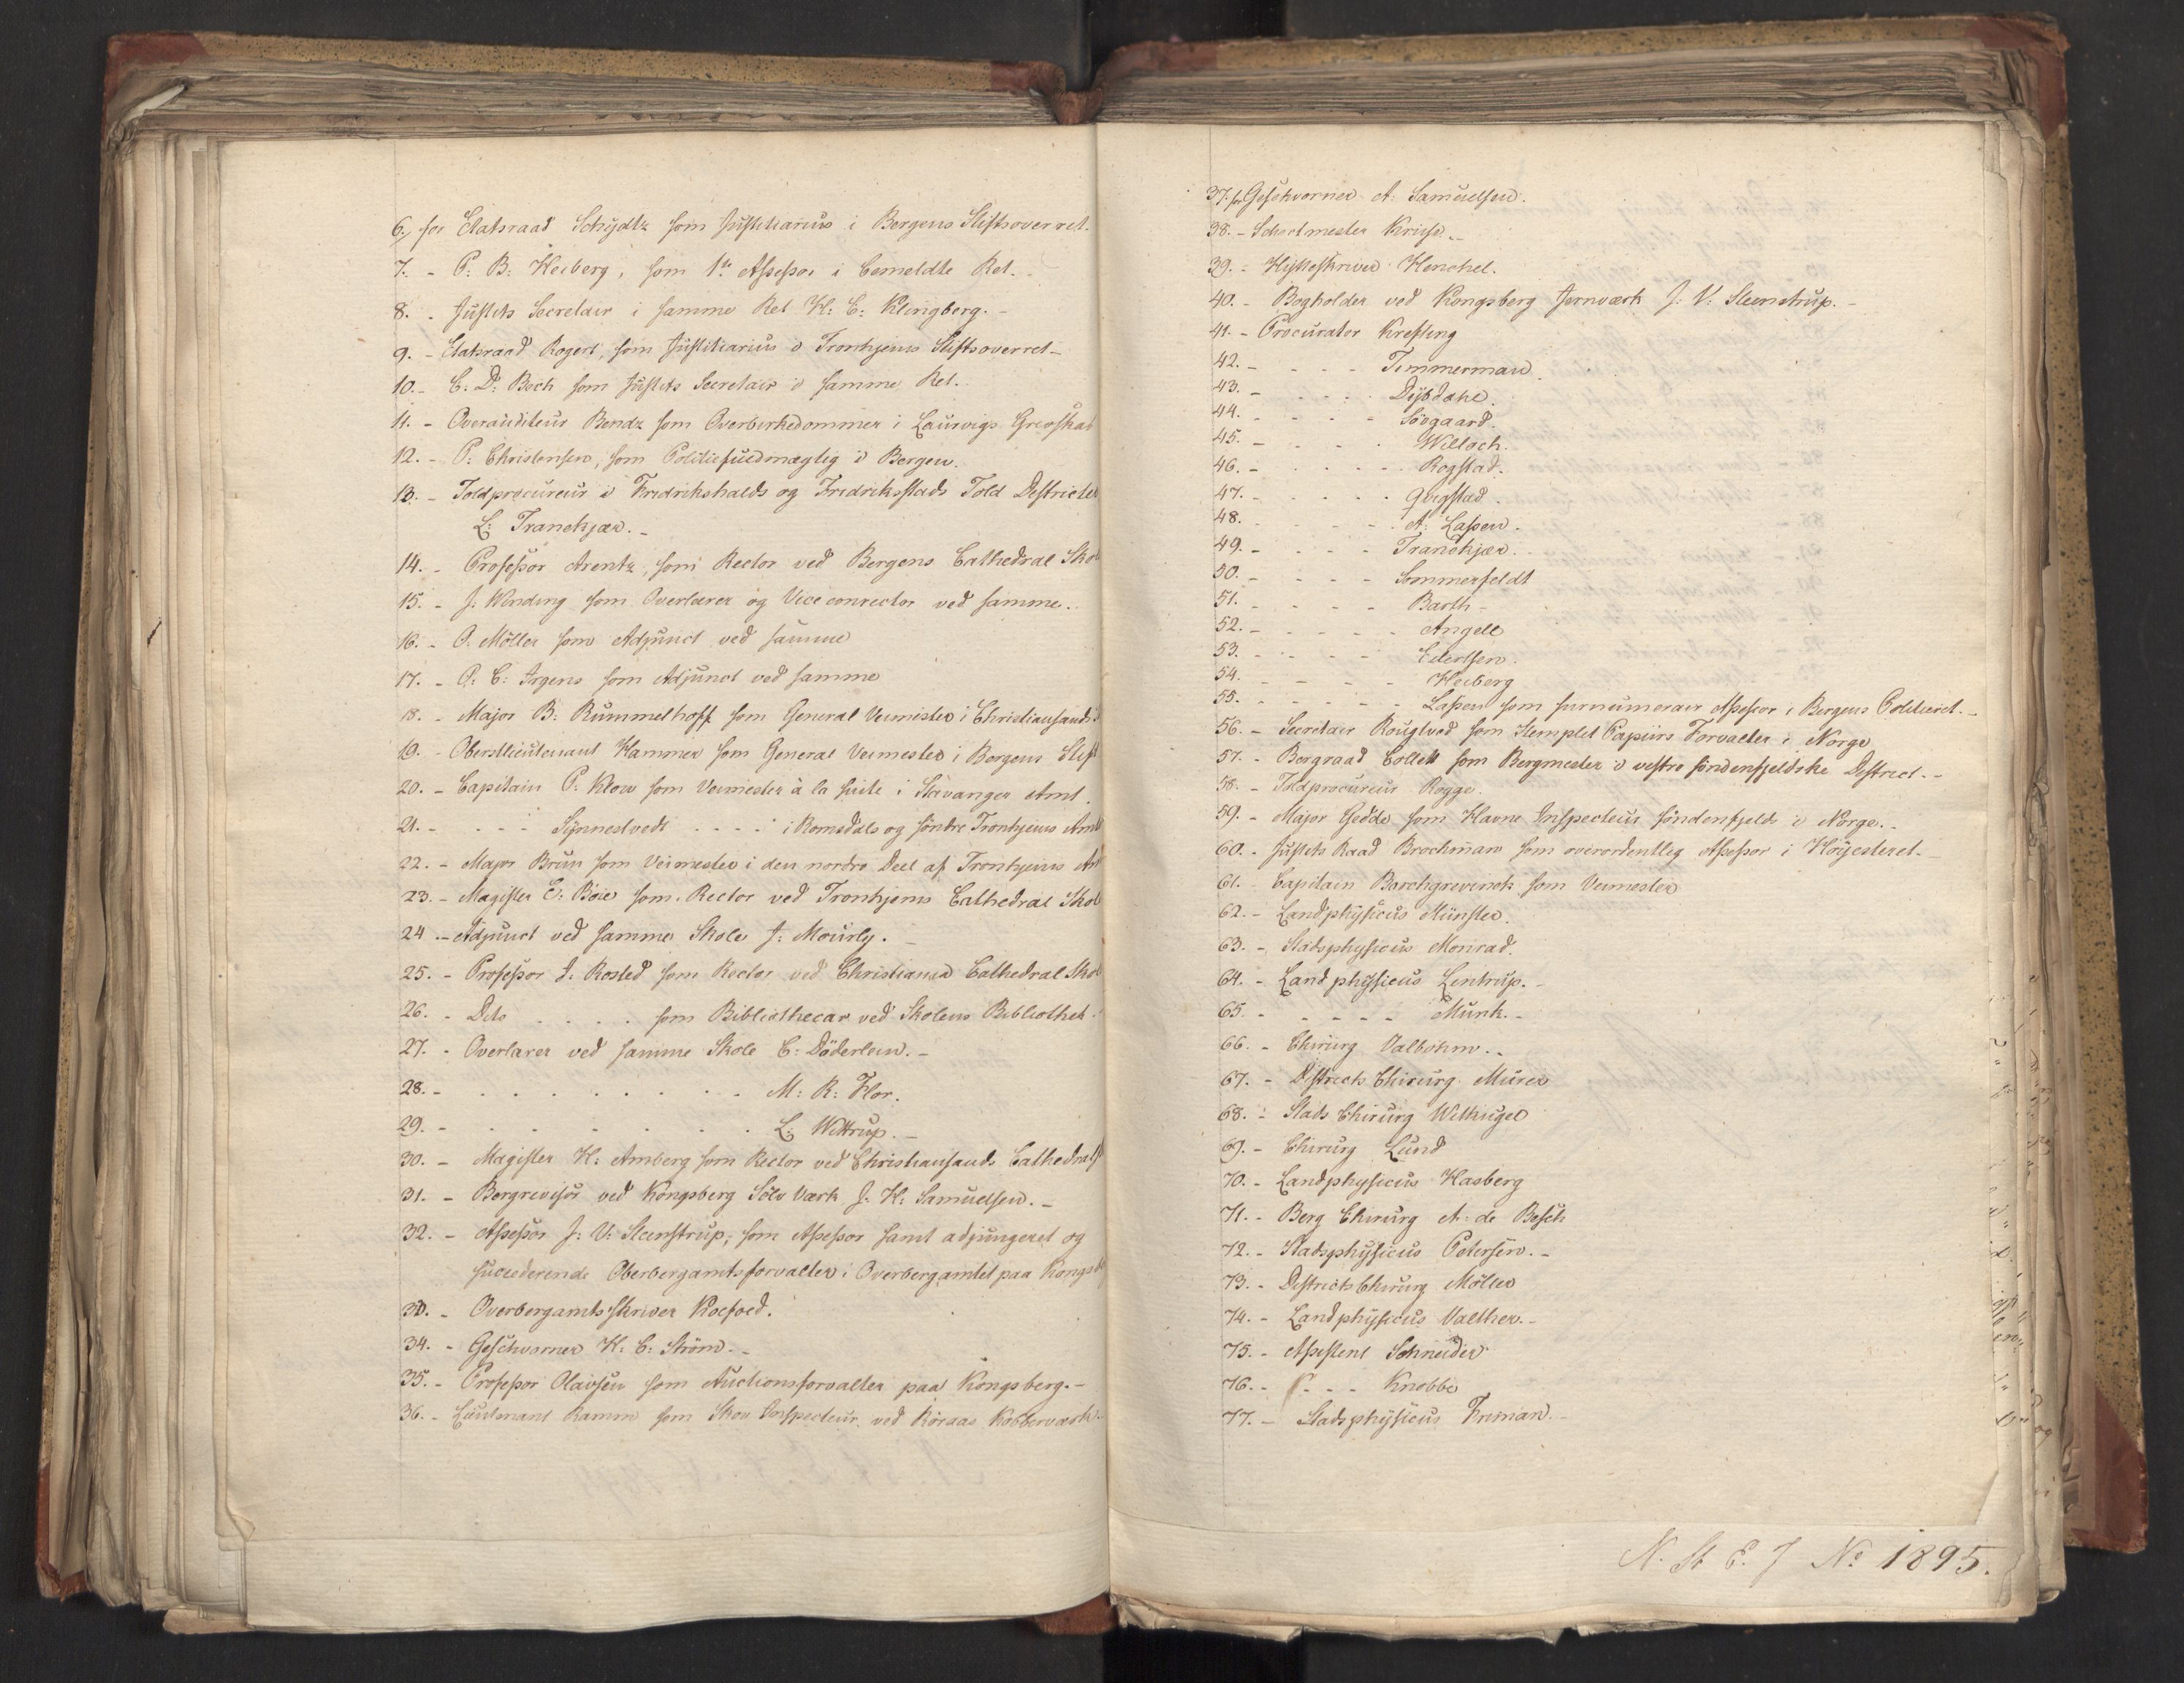 6, for Etatsraad Schydtz som Justitiarius i Bergens Stiftsoverret.
7. - P: B: Heiberg, som 1te Assessor i bemeldte Ret.
8. - Justits Secretair i samme Ret H: C: Klingberg. -
9. - Etatsraad Rogert, som Justitiarius i Tronhjems Stiftsoverret -
10. - C: D: Boch som Justits Secretair i samme Ret.
11. - Overauditeur Bendz som Overbirkedommer i Laurvigs Grevskab
12. - P: Christensen, som Politiefuldmægtig i Bergen.
13. - Toldprocureur i Fredrikshalds og Fredriksstads Told Districter
L: Tranekjær. -
14. - Professor Arentz, som Rector ved Bergens Cathedral Skol
15. - J: Winding som Overlærer og Vice conrector ved samme.
16. - O. Möller som Adjunct ved samme
17. - P: C: Irgens som Adjunct ved samme
18. - Major B: Rummelhoff som General Veimester i Christiansands
19. - Oberstlieutenant Hammer som General Veimester i Bergens Stift
20. - Capitain P: Klow som Veimester à la suite i Stavanger Amt.
21. - - - - Synnestvedt - - - - i Romsdals og söndre Tronhjems Amt
22. - Major Brun som Veimester i den nordre Deel af Tronhjems
23. - Magister E: Böie som Rector ved Tronhjems Cathedral Skol
24. - Adjunct ved samme Skole J: Mourly.
25. - Professor J: Rosted som Rector ved Christiania Cathedral Skol
26. - Dito . . . . som Bibliothecar ved Skolens Bibliothek.
27. - Overlærer ved samme Skole C: Döderlein. -
28. - . . . . . . . . M: R: Flor.
29. - . . . . . . . . L: Wittrup. -
30. - Magister H: Amberg som Rector ved Christiansands Cathedral
31. - Bergrevisor ved Kongsberg Sölv Værk J: H: Samuelsen. -
32. - Assessor J: V: Steenstrup, som Assessor samt adjungeret og
succederende Oberbergamtsforvalter i Overbergamtet paa Kongsb
33. - Overbergamts Skriver Koefoed.
34. - Geschvorner H: C: Ström. -
35. - Professor Olavsen som Auctionsforvalter paa Kongsberg. -
36. - Lieutenant Ramm som Skov Inspecteur ved Röraas Kobberværk.
37. for Geschvorner A: Samuelsen.
38. - Schactmester
39. - Hytteskriver Henchel.
40. - Bogholder ved Kongsberg Jernværk J: V: Steenstrup. -
41. - Procurator Kresting
42. - - - - Timmerman
43. - - - - Dybdahl.
44. - - - - Sövgaard.
45. - - - - Willoch.
46. - - - - Rogstad.
47. - - - - Qvigstad.
48. - - - - A: Lassen.
49. - - - - Tranekjær.
50. - - - - Sommerfeldt
51. - - - - Barth -
52. - - - - Angell
53. - - - - Edertsen.
54. - - - - Heiberg
55. - - - - Lassen som surnumerair Assessor i Bergens Politieret. -
56. - Secretair Rougtved som Stemplet Papiirs Forvalter i Norge
57. - Bergraad Collett som Bergmester i vestre söndenfjeldske District. -
58. - Toldprocureur Rogge.
59. - Major Gedde som Havne Inspecteur söndenfjelds i Norge. -
60. - Justits Raad Brochman som overordentlig Assessor i Höyesteret. -
61. - Capitain Borchgrevinck som Veimester
62. - Landphysicus Münster.
63. - Stadsphysicus Monrad.
64. - Landphysicus Lentrup. -
65. - - - - - Munk. -
66. - Chirurg Valbohm. -
67. - Districts Chirurg Murer
68. - Stads Chirurg Withugel
69. - Chirurg Lund
70. - Landphysicus Hasberg
71. - Berg Chirurg A: de Besch
72. - Stadsphysicus Petersen. -
73. - Districts Chirurg Möller
74. - Landphysicus Valther. -
75. - Assistent Schneider
76. - - - - Knobbe
77. - Stadsphysicus Friman. -
N. St E. J No 1895.